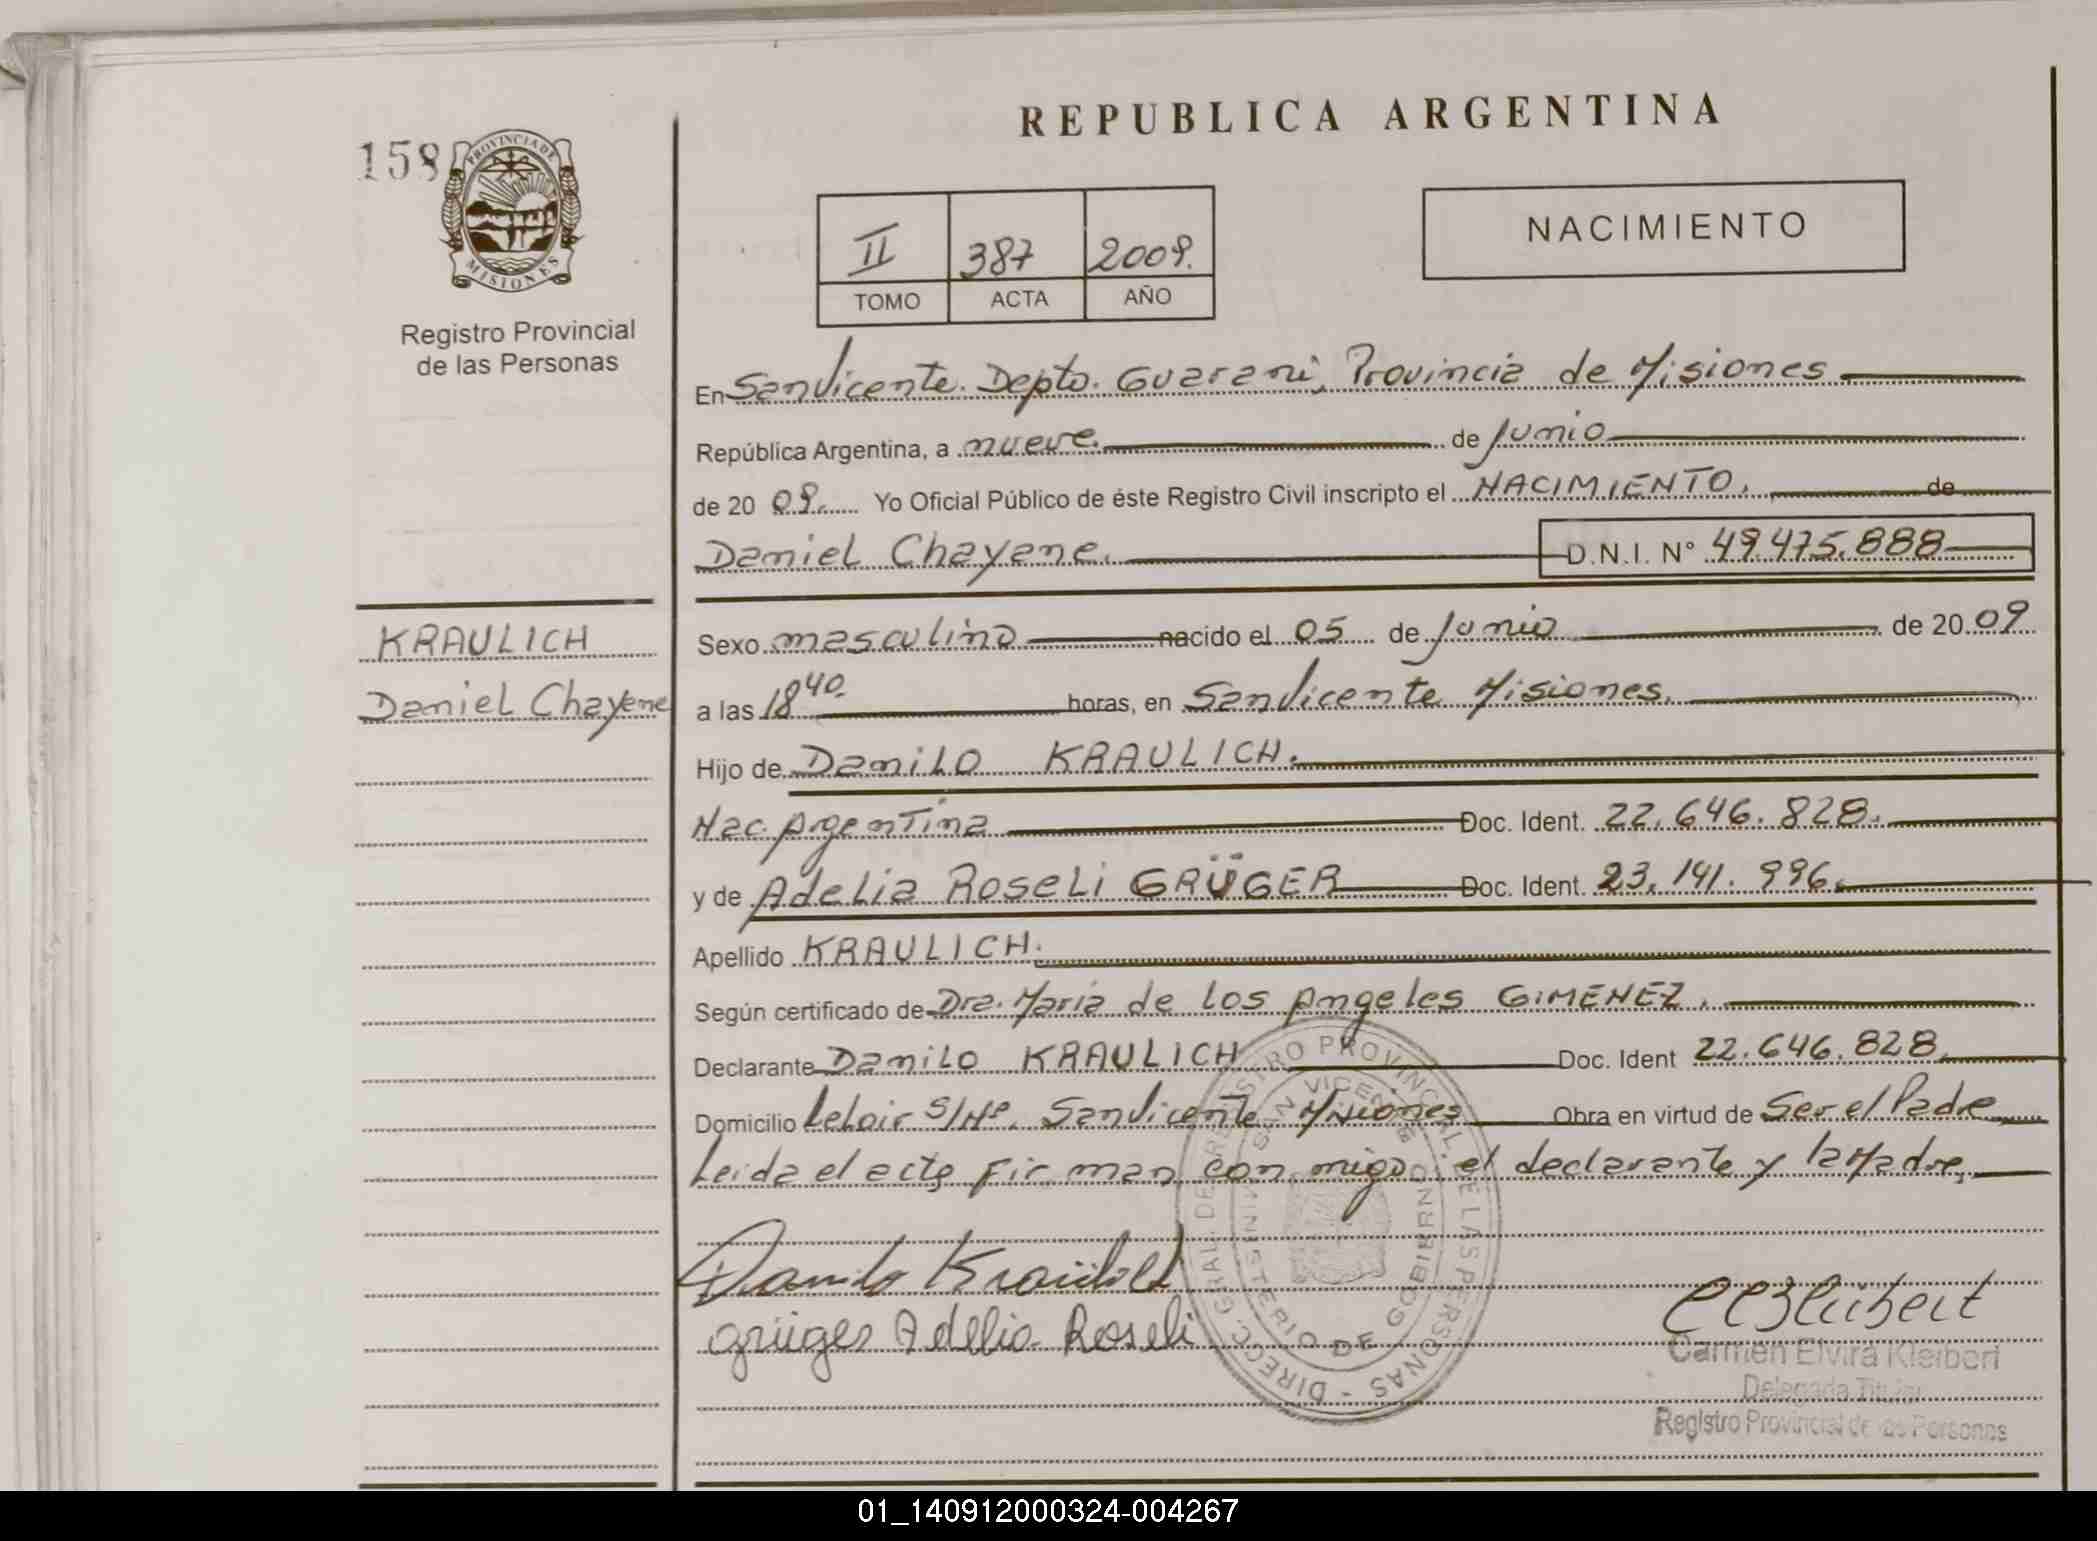 REPUBLICA ARGENTINA
158
PROVINCIA DE
MISIONES
Registro Provincial
de las Personas
II 387 2009.
TOMO ACTA AÑO
NACIMIENTO
En San Vicente. Depto. Guarani, Provincia de Misiones
República Argentina, a nueve. de Junio
de 20 09. Yo Oficial Público de éste Registro Civil inscripto el NACIMIENTO, de
Daniel Chayane. D.N.I. N° 49.475.888
KRAULICH
Daniel Chayene
Sexo masculino nacido el 05 de Junio de 20 09
a las 18 40. horas, en San Vicente Misiones.
Hijo de Danilo KRAULICH.
Nac. Argentina Doc. Ident. 22.646.828.
y de Adelia Roseli GRÜGER Doc. Ident. 23.141.996.
Apellido KRAULICH.
Según certificado de Dra. Maria de los Angeles GIMENEZ.
Declarante Danilo KRAULICH Doc. Ident 22.646.828.
Domicilio Leloir S/Nº. San Vicente Misiones Obra en virtud de Ser el Padre
Leida el acta firman con migo, el declarante y la Madre,
DIRECC. GRAL. DE REGISTRO PROVINCIAL DE LAS PERSONAS -
SAN VICENTE
MINISTERIO DE GOBIERNO
Danilo Kraulich
Grüger Adelia Roseli
CEKleibert
Carmen Elvira Kleibert
Delegada Titular
Registro Provincial de las Personas
01_140912000324-004267